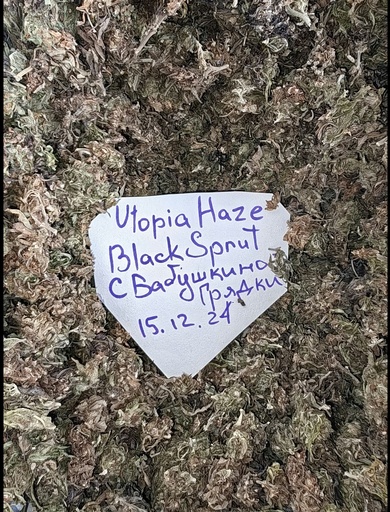 Utopia Haze
Black Sprut
С Бабушкиной
Грядки
15.12.24